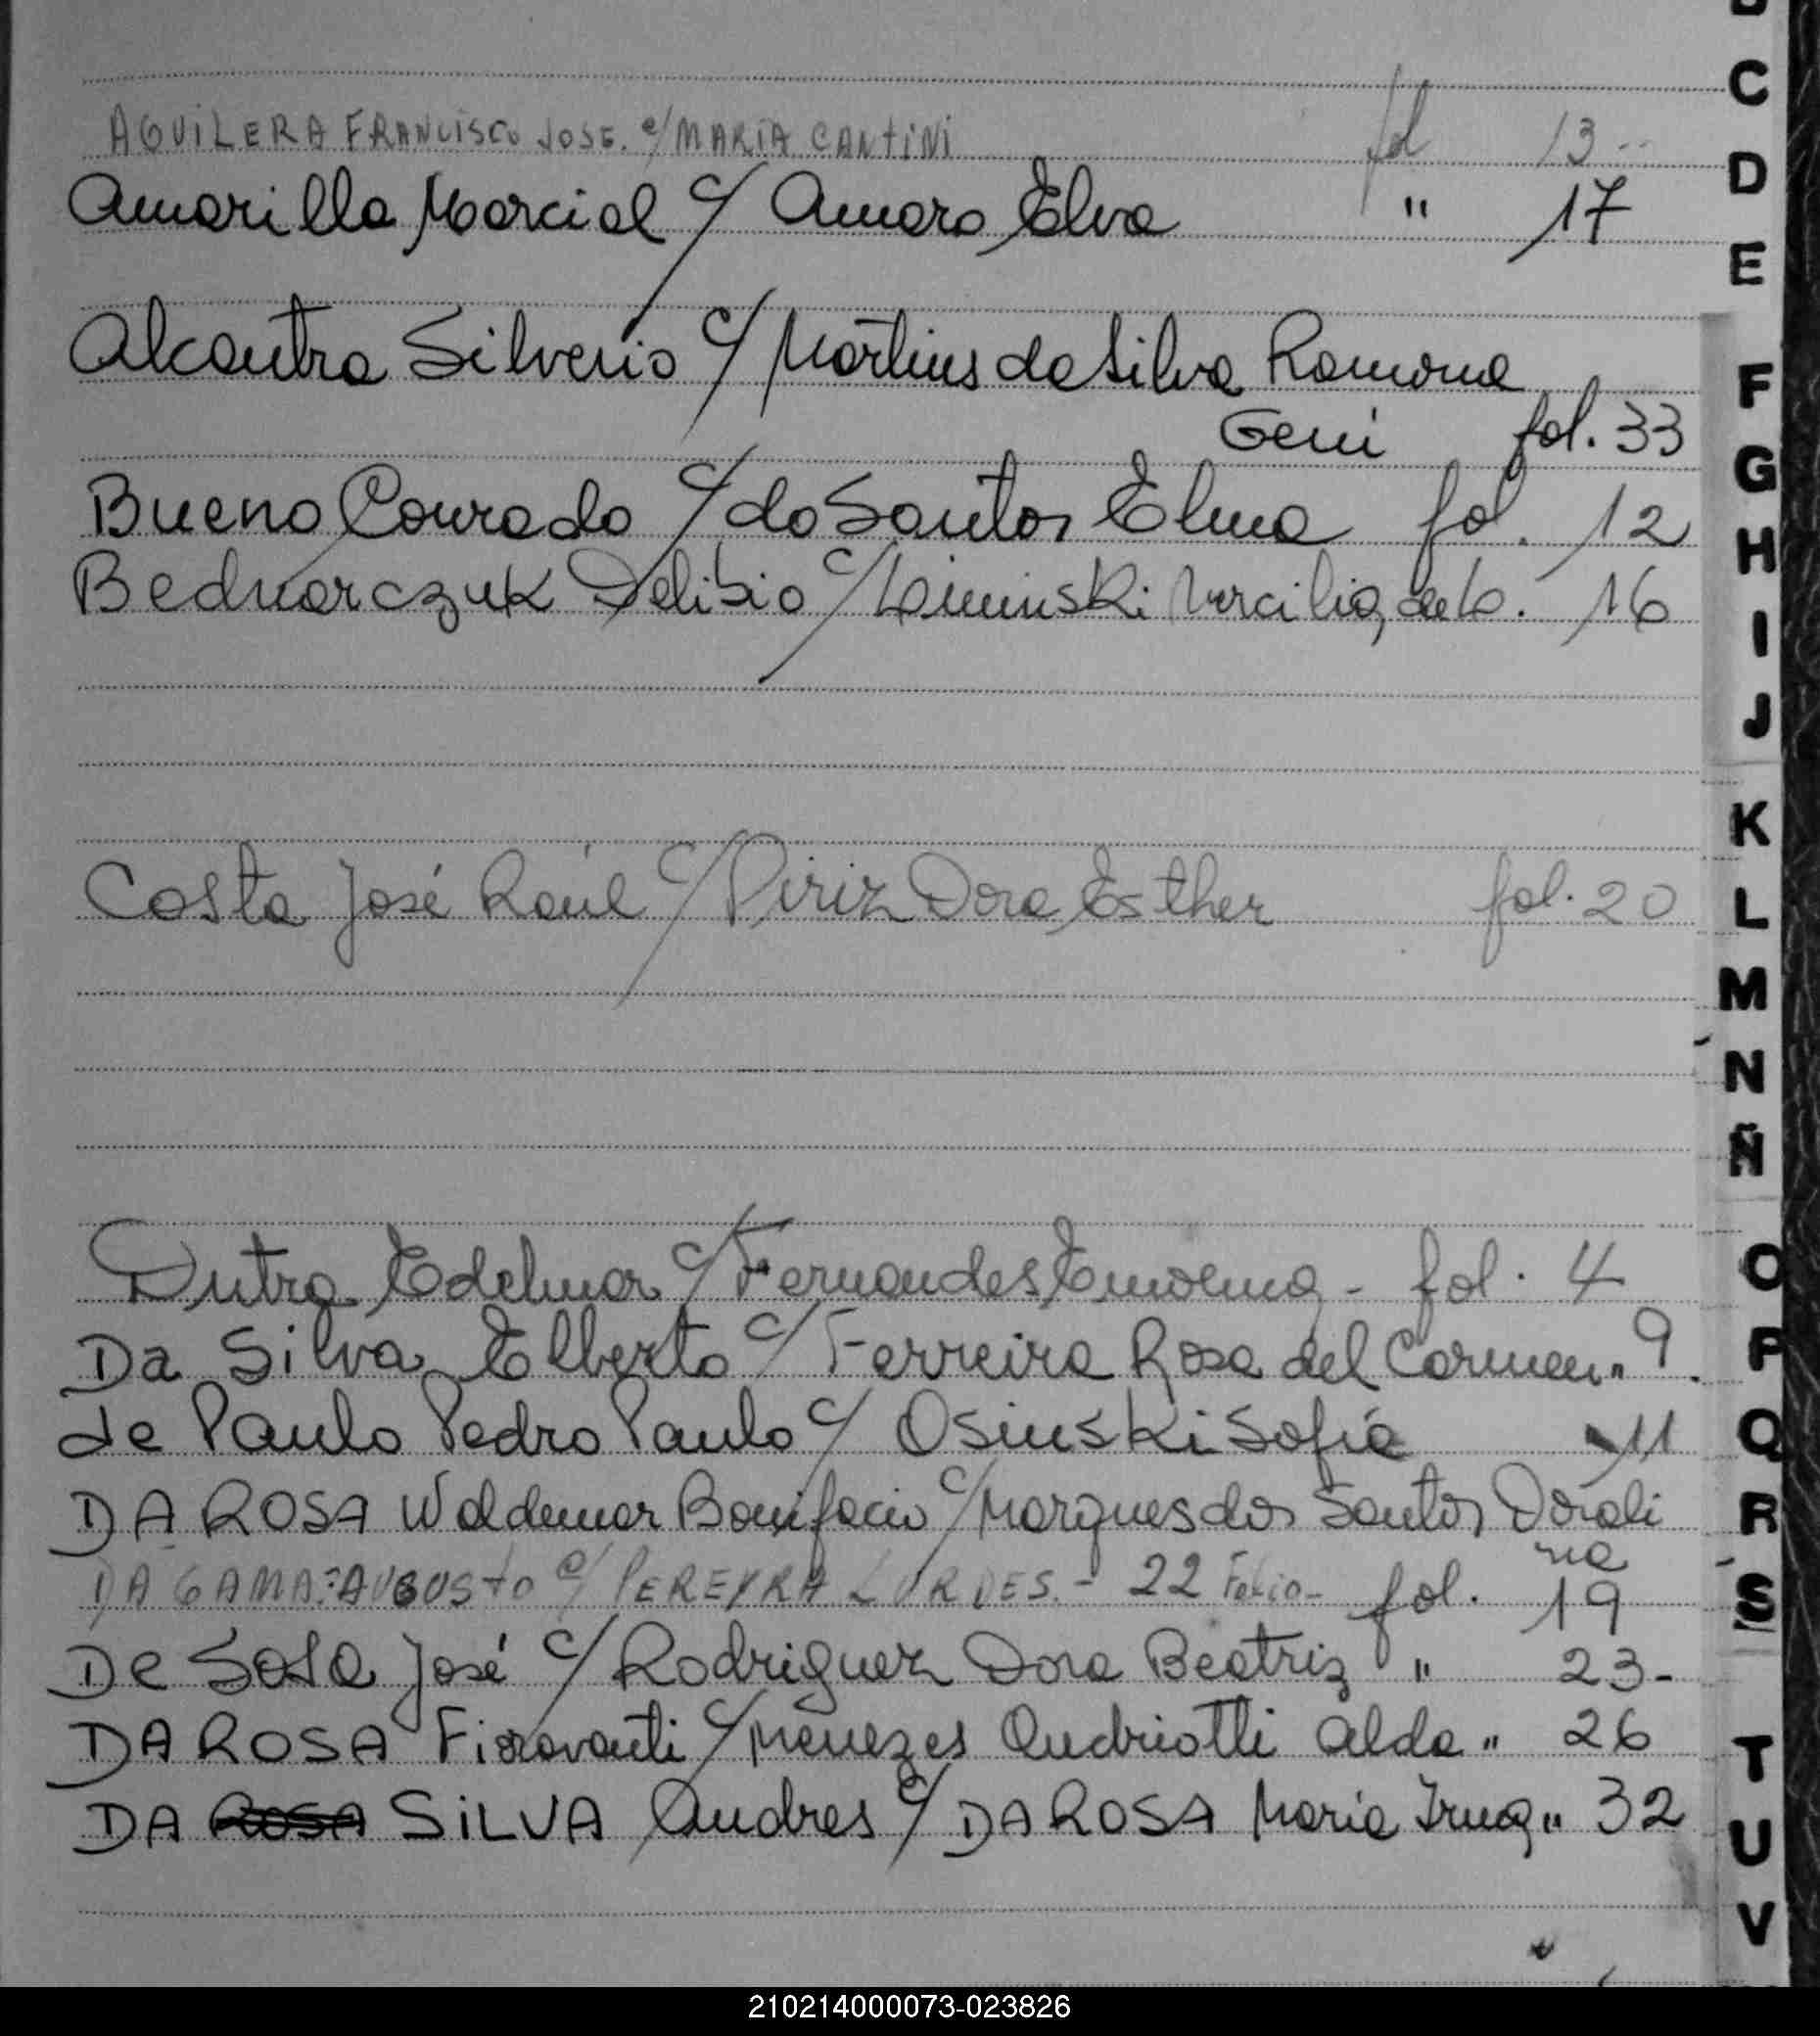 AGUILERA FRANCISCO JOSE. c/ MARIA CANTINI fol 13--
Amarilla Marcial c/ Amaro Elva " 17
Alcantra Silverio c/ Martins da Silva Ramona
Geni fol. 33
Bueno Conrado c/ do Santos Elma fol. 12
Bednarczuk Delisio c/ Liminski 16
Costa José Raúl c/ Piriz Dora Esther fol. 20
Dutra Edelmar c/ Fernandes - fol. 4
Da Silva Elberto c/ Ferreira Rosa del Carmen " 9.
de Paulo Pedro Paulo c/ Osinski Sofía 11
DA ROSA Waldemar Bonifacio c/ Marques dos Santos Dorali
na
DA GAMA: AUGUSTO c/ PEREYRA LURDES.- 22 Folio- fol. 19
De SOSA José c/ Rodriguez Dora Beatriz " 23-
DA ROSA Fioravanti c/ Menezes Andriotti Alda " 26
DA ROSA SILVA Andres c/ DA ROSA Maria Irma " 32
C
D
E
F
G
H
I
J
K
L
M
N
Ñ
O
P
Q
R
S
T
U
V
210214000073-023826